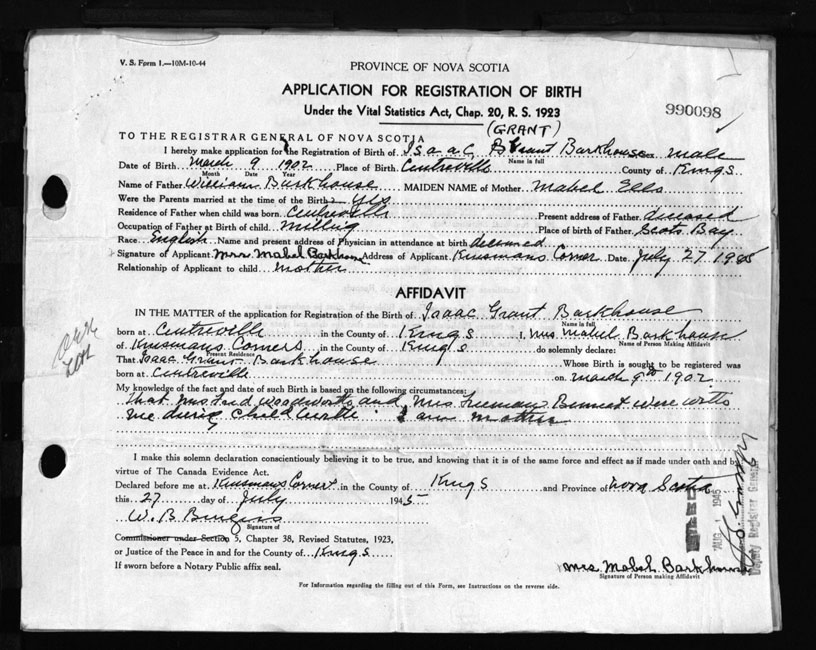 V. S. Form 1.—10M-10-44
PROVINCE OF NOVA SCOTIA
APPLICATION FOR REGISTRATION OF BIRTH
Under the Vital Statistics Act, Chap. 20, R. S. 1923
990098
(GRANT)
TO THE REGISTRAR GENERAL OF NOVA SCOTIA
I hereby make application for the Registration of Birth of Isaac Grant Barkhouse Sex male
Name in full
Date of Birth March 9 1902 Place of Birth Centreville County of Kings
Month Date Year
Name of Father William Barkhouse MAIDEN NAME of Mother Mabel Ells
Were the Parents married at the time of the Birth? yes
Residence of Father when child was born Centreville Present address of Father deceased
Occupation of Father at Birth of child milling Place of birth of Father Scots Bay
Race English Name and present address of Physician in attendance at birth deceased
Signature of Applicant Mrs Mabel Barkhouse Address of Applicant Kinsmans Corner Date July 27 1945
Relationship of Applicant to child mother
AFFIDAVIT
IN THE MATTER of the application for Registration of the Birth of Isaac Grant Barkhouse
Name in full
born at Centreville in the County of Kings I, Mrs Mabel Barkhouse
Name of Person Making Affidavit
of Kinsmans Corners in the County of Kings do solemnly declare:
Present Residence
That Isaac Grant Barkhouse Whose Birth is sought to be registered was
born at Centreville on March 9th 1902
My knowledge of the fact and date of such Birth is based on the following circumstances:
That Mrs Fred Woodworth and Mrs Freeman Bennet were with
me during child birth I am mother
I make this solemn declaration conscientiously believing it to be true, and knowing that it is of the same force and effect as if made under oath and by
virtue of The Canada Evidence Act.
Declared before me at Kinsmans Corner in the County of Kings and Province of Nova Scotia
this 27 day of July 1945
W. B.
Signature of
Commissioner under Section 5, Chapter 38, Revised Statutes, 1923,
or Justice of the Peace in and for the County of Kings
If sworn before a Notary Public affix seal.
Mrs Mabel Barkhouse
Signature of Person making Affidavit
For Information regarding the filling out of this Form, see Instructions on the reverse side.
AUG 1 1945
Deputy Registrar General